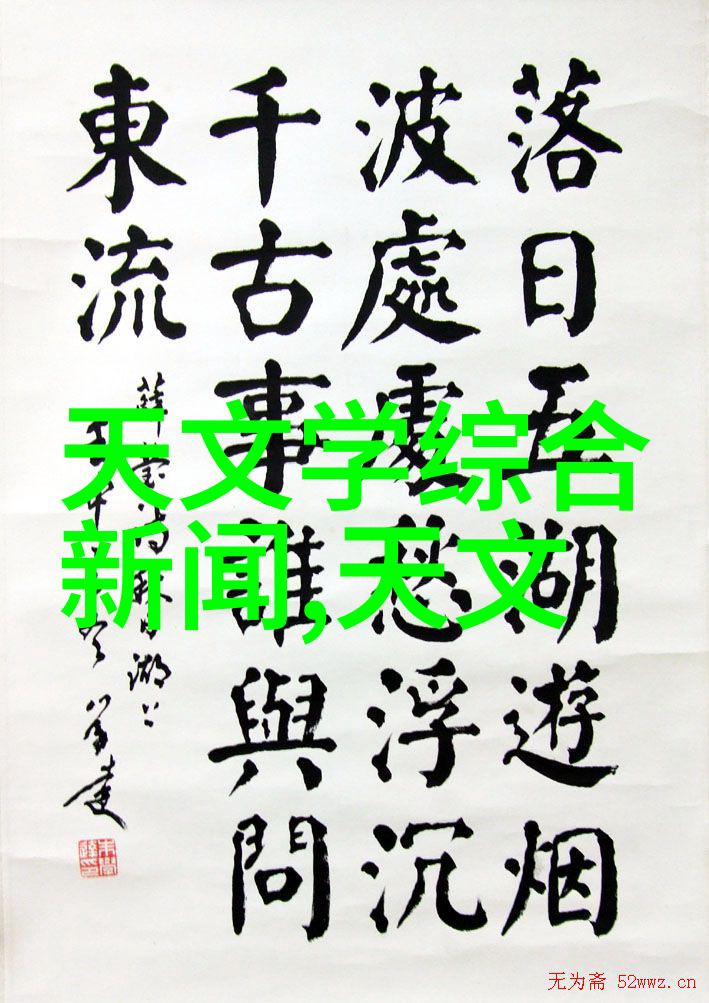 落日五湖遊烟
波處處愁浮沉
千古事誰與問
東流
薛瑩詩秋日湖上
天文学综合
新闻,天文
无为斋 52wwz.cn